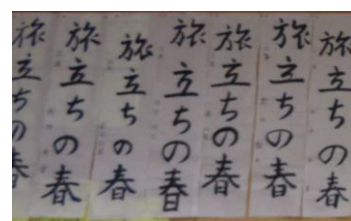 旅立ちの春
旅立ちの春
旅立ちの春
旅立ちの春
旅立ちの春
旅立ちの春
旅立ちの春